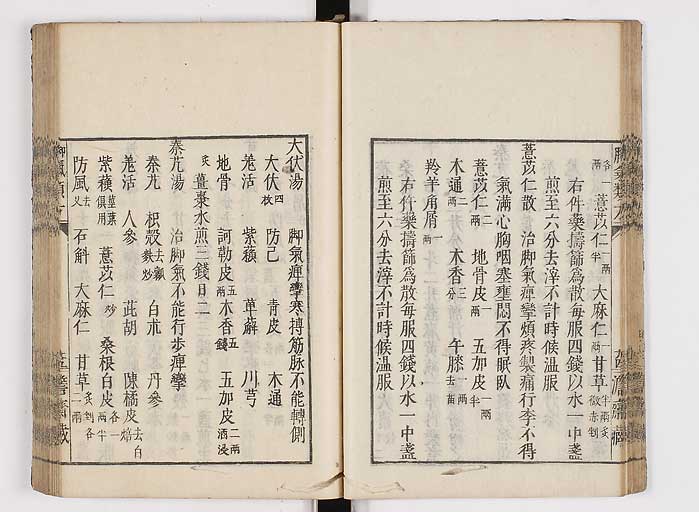 各一兩 薏苡仁一兩半 大麻仁一兩 甘草半兩炙微赤剉
右件藥擣篩爲散每服四錢以水一中盞
煎至六分去滓不計時候温服
薏苡仁散 治脚氣痺攣煩疼製痛行李不得
氣滿心胸咽塞壅悶不得眠臥
薏苡仁二兩 地骨皮一兩 五加皮一兩半
木通二兩 木香三分 午膝一兩去苗
羚羊角屑一兩
右件藥擣篩爲散每服四錢以水一中盞
煎至六分去滓不計時候温服
大伏湯 脚氣痺攣寒搏筋脉不能轉側
大伏四枚 防己 青皮 木通
羗活 紫蘓 萆薢 川芎
地骨 訶勒皮五兩 木香五錢 五加皮二兩酒浸
炙 薑棗水煎三錢日二
秦艽湯 治脚氣不能行歩痺攣
秦艽 枳殼去瓤麩炒 白朮 丹參
羗活 人參 茈胡 陳橘皮去白焙
紫蘓莖葉俱用 薏苡仁炒 桑根白皮各一兩半
防風去叉 石斛 大麻仁 甘草炙剉各二兩